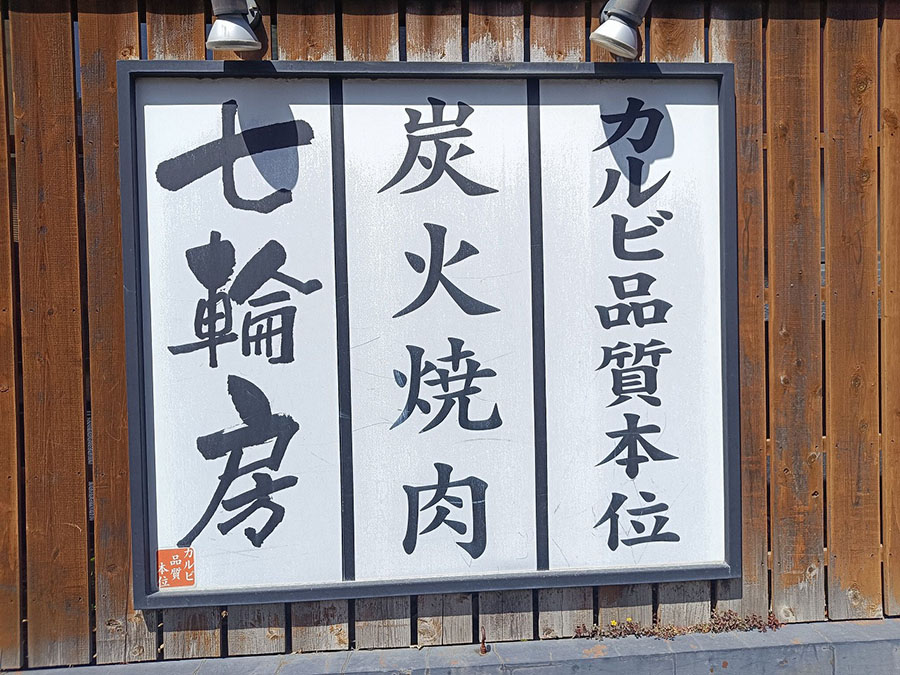 カルビ品質本位
炭火焼肉
七輪房
カルビ
品質
本位